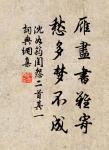 雁盡書難寄
愁多夢不成
沈如筠閨怨二首其一
詞典網集